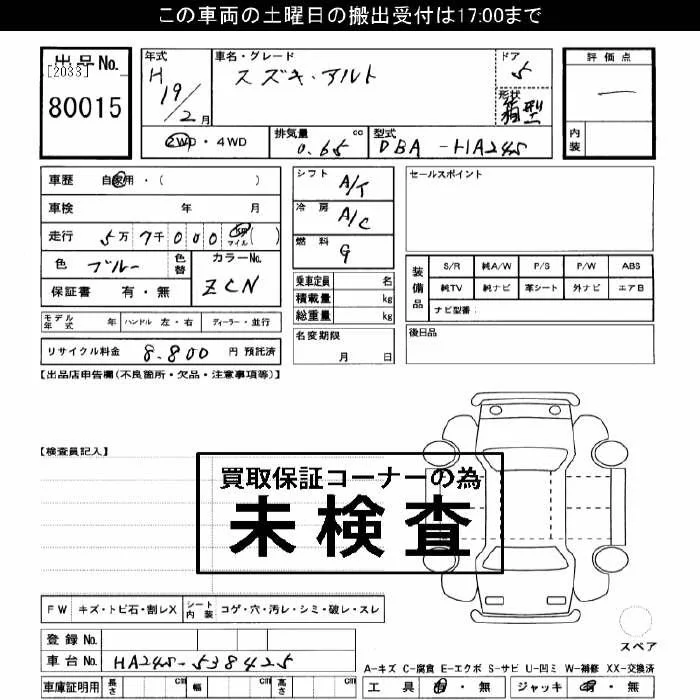 この車両の土曜日の搬出受付は17:00まで
出品No.
[2033]
80015
年式
H
19/2月
車名・グレード
スズキ・アルト
ドア
5
形状
箱型
評価点
―
内装
2WD・4WD
排気量 0.65 cc
型式 DBA-HA24S
車歴 自家用・( )
車検 年 月
走行 5万7千000 km マイル ( )
色 ブルー
色替
カラーNo.
ZCN
保証書 有・無
モデル年式 年 ハンドル 左・右 ディーラー・並行
リサイクル料金 8,800 円 預託済
シフト A/T
冷房 A/C
燃料 G
乗車定員 名
積載量 kg
総重量 kg
名変期限
月 日
セールスポイント
装備品
S/R 純A/W P/S P/W ABS
純TV 純ナビ 革シート 外ナビ エアB
ナビ型番:
後日品
【出品店申告欄(不良箇所・欠品・注意事項等)】
【検査員記入】
買取保証コーナーの為
未検査
FW キズ・トビ石・割レX シート内装 コゲ・穴・汚レ・シミ・破レ・スレ
登録No.
車台No. HA24S-538425
車庫証明用 長さ cm 幅 cm 高さ cm
スペア
A-キズ C-腐食 E-エクボ S-サビ U-凹ミ W-補修 XX-交換済
工具 有・無 ジャッキ 有・無